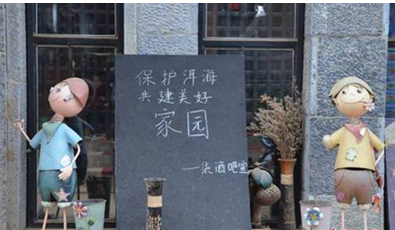 保护洱海
共建美好
家园
——柒酒吧宣